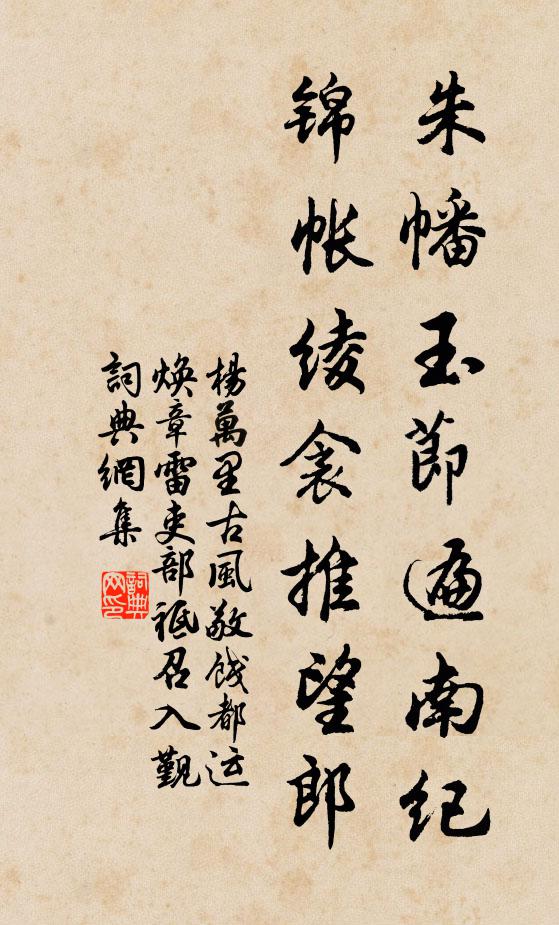 朱幡玉節遍南纪
锦帐绫衾推望郎
楊萬里古風敬餞都运
焕章雷吏部祗召入觐
詞典網集
詞典网印